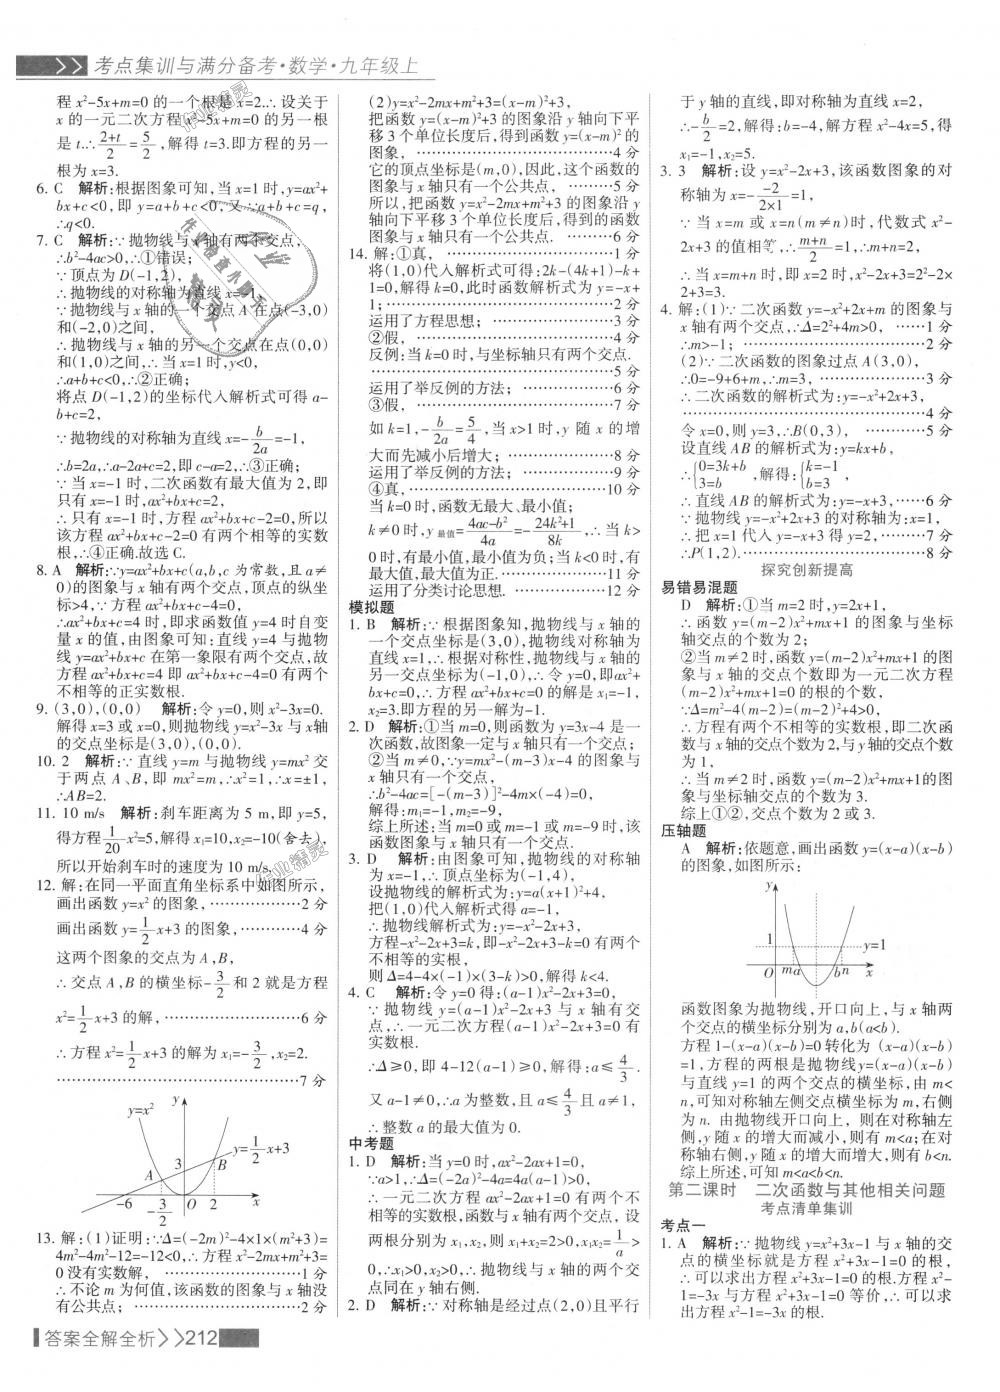 >> 考点集训与满分备考·数学·九年级上
程 x²-5x+m=0 的一个根是 x=2.∴设关于
x 的一元二次方程 x²-5x+m=0 的另一根
是 t.∴(2+t)/2=5/2,解得 t=3.即方程的另一
根为 x=3.
6. C 解析:根据图象可知,当 x=1 时,y=ax²+
bx+c<0,即 y=a+b+c<0,又∵a+b+c=q,
∴q<0.
7. C 解析:∵抛物线与 x 轴有两个交点,
∴b²-4ac>0,∴①错误;
∵顶点为 D(-1,2),
∴抛物线的对称轴为直线 x=-1,
∵抛物线与 x 轴的一个交点 A 在点(-3,0)
和(-2,0)之间,
∴抛物线与 x 轴的另一个交点在点(0,0)
和(1,0)之间,∴当 x=1 时,y<0,
∴a+b+c<0,∴②正确;
将点 D(-1,2)的坐标代入解析式可得 a-
b+c=2,
∵抛物线的对称轴为直线 x=-b/2a=-1,
∴b=2a,∴a-2a+c=2,即 c-a=2,∴③正确;
∵当 x=-1 时,二次函数有最大值为 2,即
只有 x=-1 时,ax²+bx+c=2,
∴只有 x=-1 时,方程 ax²+bx+c-2=0,所以
该方程 ax²+bx+c-2=0 有两个相等的实数
根,∴④正确.故选 C.
8. A 解析:∵y=ax²+bx+c(a,b,c 为常数,且 a≠
0)的图象与 x 轴有两个交点,顶点的纵坐
标>4,∵方程 ax²+bx+c-4=0,
∴ax²+bx+c=4 时,即求函数值 y=4 时自变
量 x 的值,由图象可知:直线 y=4 与抛物
线 y=ax²+bx+c 在第一象限有两个交点,故
方程 ax²+bx+c=4 即 ax²+bx+c-4=0 有两个
不相等的正实数根.
9. (3,0),(0,0) 解析:令 y=0,则 x²-3x=0.
解得 x=3 或 x=0,则抛物线 y=x²-3x 与 x轴
的交点坐标是(3,0),(0,0).
10. 2 解析:∵直线 y=m 与抛物线 y=mx² 交
于两点 A、B,即 mx²=m,∴x²=1,∴x=±1,
∴AB=2.
11. 10 m/s 解析:刹车距离为 5 m,即 y=5,
得方程 1/20 x²=5,解得 x₁=10,x₂=-10(舍去),
所以开始刹车时的速度为 10 m/s.
12. 解:在同一平面直角坐标系中如图所示,
画出函数 y=x² 的图象,………………2 分
画出函数 y=1/2 x+3 的图象,…………4 分
这两个图象的交点为 A,B,
∴交点 A,B 的横坐标-3/2 和 2 就是方程
x²=1/2 x+3 的解,………………………6 分
∴方程 x²=1/2 x+3 的解为 x₁=-3/2,x₂=2.
………………………………………7 分
y=x² y
y=1/2 x+3
3 B
A
-6 -3/2 O 2 x
13. 解:(1)证明:∵Δ=(-2m)²-4×1×(m²+3)=
4m²-4m²-12=-12<0,∴方程 x²-2mx+m²+3=
0 没有实数解,…………………………1 分
∴不论 m 为何值,该函数的图象与 x 轴没
有公共点;……………………………2 分
(2)y=x²-2mx+m²+3=(x-m)²+3,
把函数 y=(x-m)²+3 的图象沿 y 轴向下平
移 3 个单位长度后,得到函数 y=(x-m)² 的
图象,…………………………………4 分
它的顶点坐标是(m,0),因此,这个函数的
图象与 x 轴只有一个公共点,………5 分
所以,把函数 y=x²-2mx+m²+3 的图象沿 y
轴向下平移 3 个单位长度后,得到的函数
图象与 x 轴只有一个公共点.………6 分
14. 解:①真,……………………………1 分
将(1,0)代入解析式可得:2k-(4k+1)-k+
1=0,解得 k=0,此时函数解析式为 y=-x+
1;………………………………………2 分
运用了方程思想;……………………3 分
②假,…………………………………4 分
反例:当 k=0 时,与坐标轴只有两个交点.
…………………………………………5 分
运用了举反例的方法;………………6 分
③假,…………………………………7 分
如 k=1,-b/2a=5/4,当 x>1 时,y 随 x 的增
大而先减小后增大;…………………8 分
运用了举反例的方法;………………9 分
④真,…………………………………10 分
当 k=0 时,函数无最大、最小值;
k≠0 时,y最值=(4ac-b²)/4a=-(24k²+1)/8k,∴当 k>
0 时,有最小值,最小值为负;当 k<0 时,有
最大值,最大值为正.………………11 分
运用了分类讨论思想.………………12 分
模拟题
1. B 解析:∵根据图象知,抛物线与 x 轴的
一个交点坐标是(3,0),抛物线对称轴为
直线 x=1,∴根据对称性,抛物线与 x 轴的
另一交点坐标为(-1,0),∴令 y=0,即ax²+
bx+c=0,∴方程 ax²+bx+c=0 的解是 x₁=-1,
x₂=3.即方程的另一解为-1.
2. D 解析:①当 m=0,则函数为 y=3x-4 是一
次函数,故图象一定与 x 轴只有一个交点;
②当 m≠0,∵y=mx²-(m-3)x-4 的图象与
x 轴只有一个交点,
∴b²-4ac=[-(m-3)]²-4m×(-4)=0,
解得:m₁=-1,m₂=-9,
综上所述:当 m=0 或 m=-1 或 m=-9 时,该
函数图象与 x 轴只有一个交点.
3. D 解析:由图象可知,抛物线的对称轴
为 x=-1,顶点坐标为(-1,4),
设抛物线的解析式为:y=a(x+1)²+4,
把(1,0)代入解析式得 a=-1,
∴抛物线解析式为:y=-x²-2x+3,
方程-x²-2x+3=k,即-x²-2x+3-k=0 有两个
不相等的实根,
则 Δ=4-4×(-1)×(3-k)>0,解得 k<4.
4. C 解析:令 y=0 得:(a-1)x²-2x+3=0,
∵抛物线 y=(a-1)x²-2x+3 与 x 轴有交
点,∴一元二次方程(a-1)x²-2x+3=0 有
实数根.
∴Δ≥0,即 4-12(a-1)≥0,解得:a≤4/3.
又 a-1≠0,∴a 为整数,且 a≤4/3 且 a≠1,
∴整数 a 的最大值为 0.
中考题
1. D 解析:当 y=0 时,ax²-2ax+1=0,
∵a>1,∴Δ=(-2a)²-4a=4a(a-1)>0,
∴一元二次方程有两个不相等的实数根,设
两根分别为 x₁,x₂,则 x₁+x₂=2>0,x₁x₂=1/a>
0,∴x₁>0,x₂>0,∴抛物线与 x 轴的两个交
点同在 y 轴右侧.
2. D 解析:∵对称轴是经过点(2,0)且平行
于 y 轴的直线,即对称轴为直线 x=2,
∴-b/2=2,解得:b=-4,解方程 x²-4x=5,得
x₁=-1,x₂=5.
3. 3 解析:设 y=x²-2x+3,该函数图象的对
称轴为 x=-(-2)/(2×1)=1,
∵当 x=m 或 x=n(m≠n)时,代数式 x²-
2x+3 的值相等,∴(m+n)/2=1,∴m+n=2,
∴当 x=m+n 时,即 x=2 时,x²-2x+3=2²-2×
2+3=3.
4. 解:(1)∵二次函数 y=-x²+2x+m 的图象与
x 轴有两个交点,∴Δ=2²+4m>0,……1 分
∴m>-1;………………………………2 分
(2)∵二次函数的图象过点 A(3,0),
∴0=-9+6+m,∴m=3,………………3 分
∴二次函数的解析式为:y=-x²+2x+3,
…………………………………………4 分
令 x=0,则 y=3,∴B(0,3),…………5 分
设直线 AB 的解析式为:y=kx+b,
∴{0=3k+b 3=b,解得:{k=-1 b=3,
∴直线 AB 的解析式为:y=-x+3,……6 分
∵抛物线 y=-x²+2x+3 的对称轴为:x=1,
∴把 x=1 代入 y=-x+3 得 y=2,………7 分
∴P(1,2).……………………………8 分
探究创新提高
易错易混题
D 解析:①当 m=2 时,y=2x+1,
∴函数 y=(m-2)x²+mx+1 的图象与坐标
轴交点的个数为 2;
②当 m≠2 时,函数 y=(m-2)x²+mx+1 的图
象与 x 轴的交点个数即为一元二次方程
(m-2)x²+mx+1=0 的根的个数,
∵Δ=m²-4(m-2)=(m-2)²+4>0,
∴方程有两个不相等的实数根,即二次函
数与 x 轴的交点个数为2,与 y轴的交点个数
为 1,
∴当 m≠2 时,函数 y=(m-2)x²+mx+1的图
象与坐标轴交点的个数为 3.
综上①②,交点个数为 2 或 3.
压轴题
A 解析:依题意,画出函数 y=(x-a)(x-b)
的图象,如图所示:
y
1 y=1
O m a b n x
函数图象为抛物线,开口向上,与 x 轴两
个交点的横坐标分别为 a,b(a<b).
方程 1-(x-a)(x-b)=0 转化为 (x-a)(x-b)
=1,方程的两根是抛物线 y=(x-a)(x-b)
与直线 y=1 的两个交点的横坐标,由 m<
n,可知对称轴左侧交点横坐标为 m,右侧
为 n. 由抛物线开口向上,则在对称轴左
侧,y 随 x 的增大而减小,则有 m<a;在对
称轴右侧,y 随 x 的增大而增大,则有 b<n.
综上所述,可知 m<a<b<n.
第二课时 二次函数与其他相关问题
考点清单集训
考点一
1. A 解析:∵抛物线 y=x²+3x-1 与 x 轴的交
点的横坐标就是方程 x²+3x-1=0 的根,
∴可以求出方程 x²+3x-1=0 的根.方程 x²-
1=-3x 与方程 x²+3x-1=0 等价,∴可以求
出方程 x²-1=-3x 的根.
答案全解全析>>212